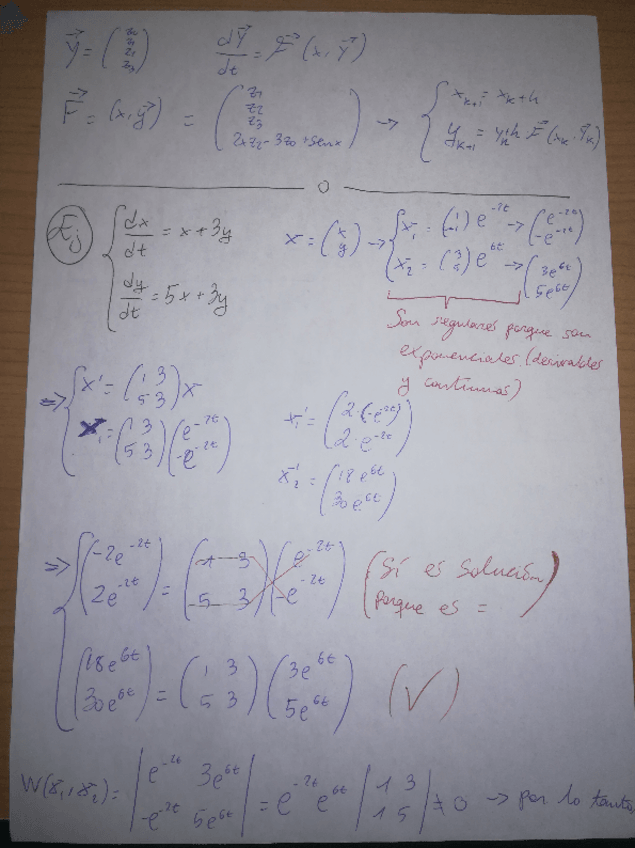 Y⃗ = (z₀ z₁ z₂ z₃) dY⃗/dt = F⃗ (x, Y⃗)
F⃗ = (x, y⃗) = (z₁ z₂ z₃ 2xz₂ - 3z₀ + senx) → { xₖ₊₁ = xₖ + h
yₖ₊₁ = yₖ + h F⃗ (xₖ, Yₖ)
0
Ej { dx/dt = x + 3y x̄ = (x y) → { x̄₁ = (1 -1) e^-2t → (e^-2t -e^-2t)
dy/dt = 5x + 3y x̄₂ = (3 5) e^6t → (3e^6t 5e^6t)
Son regulares porque son
exponenciales. (derivables
y continuas)
⇒ { x' = (1 3 5 3) x̄
x̄₁ = (1 3 5 3) (e^-2t -e^-2t) x̄₁' = (2·(-e^-2t) 2·e^-2t)
x̄₂' = (18e^6t 30e^6t)
⇒ { (-2e^-2t 2e^-2t) = (1 3 5 3) (e^-2t -e^-2t) (Sí es solución
porque es = )
(18e^6t 30e^6t) = (1 3 5 3) (3e^6t 5e^6t) (√)
W(x̄₁, x̄₂) = |e^-2t 3e^6t -e^-2t 5e^6t| = e^-2t e^6t |1 3 1 5| ≠ 0 → por lo tanto